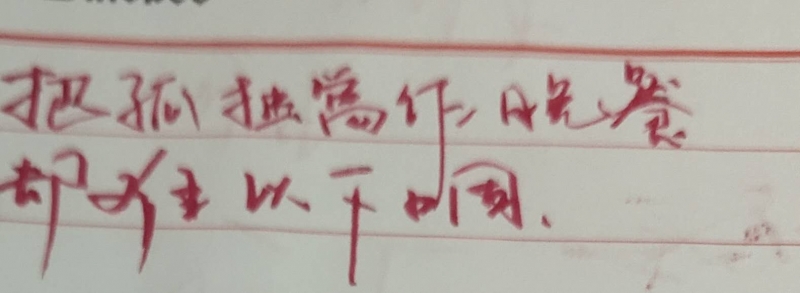 把孤独當作晚餐
却难以下咽.